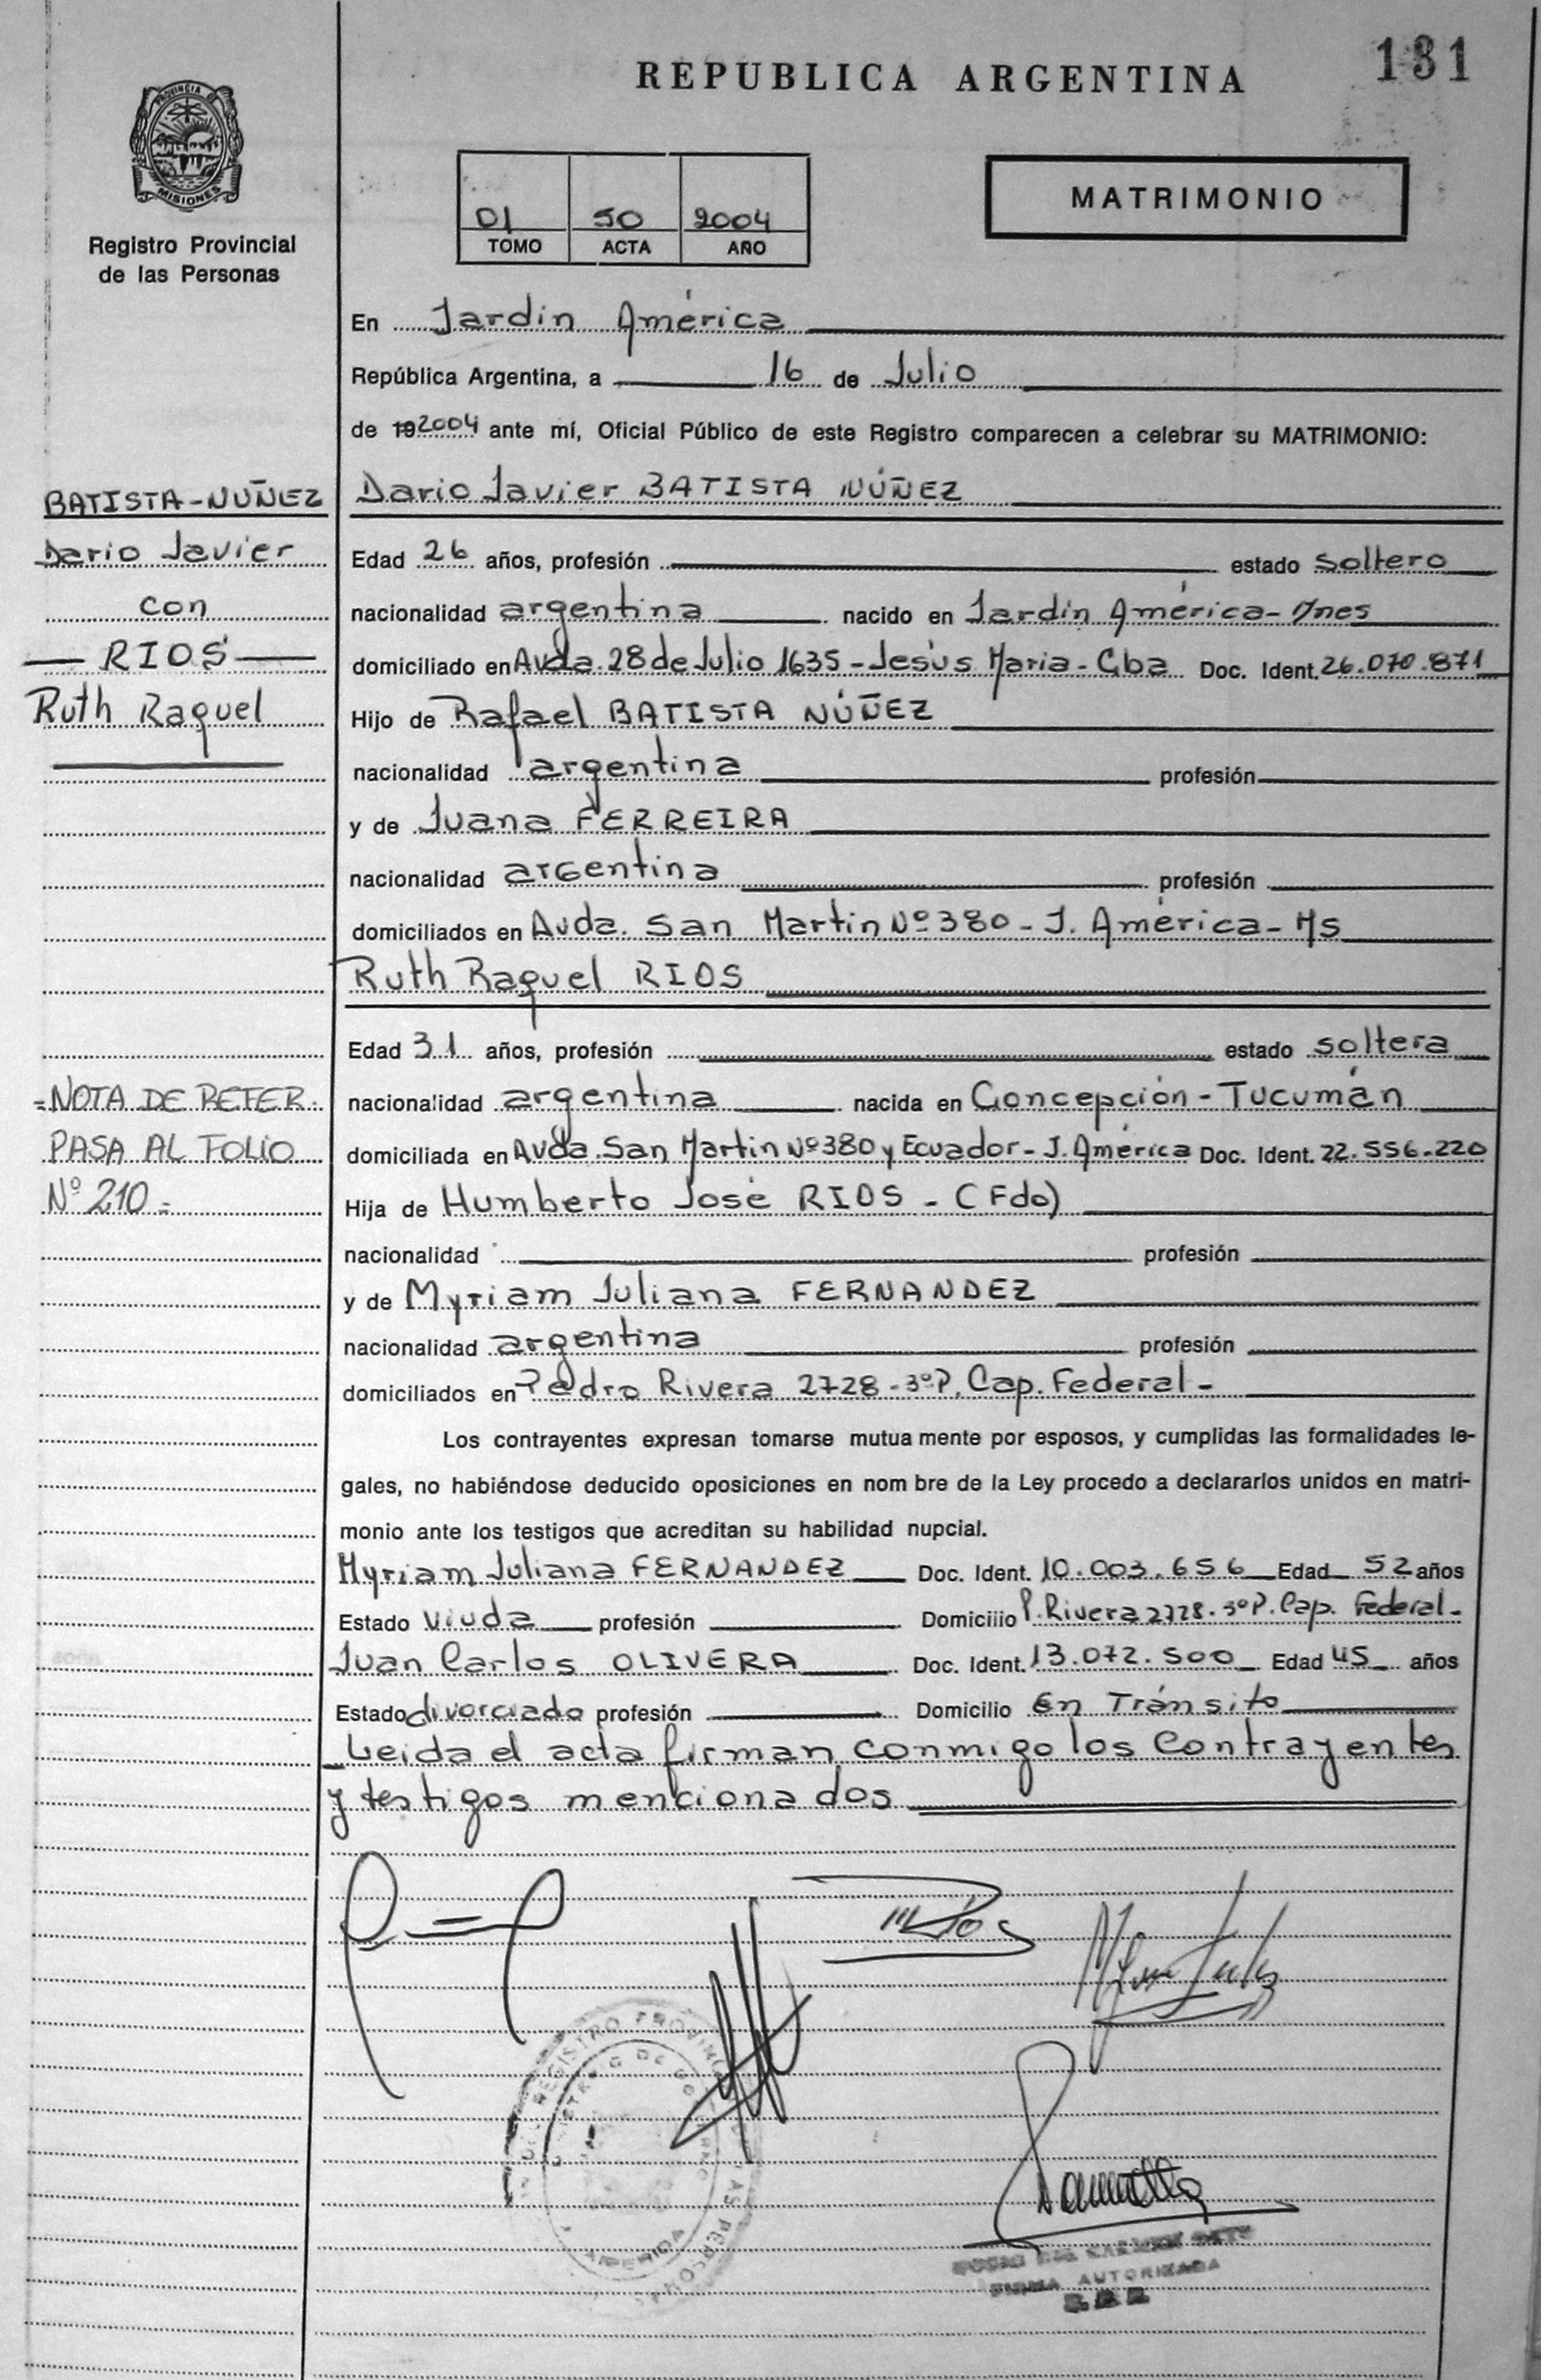 REPUBLICA ARGENTINA
131
PROVINCIA DE
MISIONES
Registro Provincial
de las Personas
01 50 2004
TOMO ACTA AÑO
MATRIMONIO
En Jardín América
República Argentina, a 16 de Julio
de 19 2004 ante mí, Oficial Público de este Registro comparecen a celebrar su MATRIMONIO:
BATISTA-NUÑEZ
Dario Javier
con
RIOS
Ruth Raquel
Dario Javier BATISTA NÚÑEZ
Edad 26 años, profesión estado soltero
nacionalidad argentina nacido en Jardín América- Mnes
domiciliado en Avda. 28 de Julio 1635 - Jesús María - Cba Doc. Ident. 26.070.871
Hijo de Rafael BATISTA NÚÑEZ
nacionalidad argentina profesión
y de Juana FERREIRA
nacionalidad argentina profesión
domiciliados en Avda. San Martín Nº 380 - J. América - Ms
Ruth Raquel RIOS
Edad 31 años, profesión estado soltera
nacionalidad argentina nacida en Concepción - Tucumán
domiciliada en Avda. San Martín Nº 380 y Ecuador - J. América Doc. Ident. 22.556.220
Hija de Humberto José RIOS - (Fdo)
nacionalidad profesión
y de Myriam Juliana FERNANDEZ
nacionalidad argentina profesión
domiciliados en Pedro Rivera 2728 - 3º P. Cap. Federal -
=NOTA DE REFER.
PASA AL FOLIO
Nº 210=
Los contrayentes expresan tomarse mutua mente por esposos, y cumplidas las formalidades le-
gales, no habiéndose deducido oposiciones en nom bre de la Ley procedo a declararlos unidos en matri-
monio ante los testigos que acreditan su habilidad nupcial.
Myriam Juliana FERNANDEZ Doc. Ident. 10.003.656 Edad 52 años
Estado viuda profesión Domicilio P. Rivera 2728 - 3º P. Cap. Federal -
Juan Carlos OLIVERA Doc. Ident. 13.072.500 Edad 45 años
Estado divorciado profesión Domicilio En Tránsito
Leída el acta firman conmigo los Contrayentes
y testigos mencionados
REGISTRO PROVINCIAL
AS PERSONAS
AMERICA
FIRMA AUTORIZADA